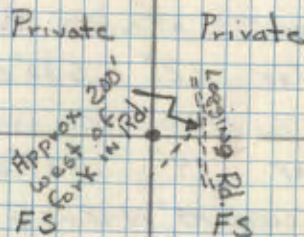 Private
Private
Approx 200'
west of
fork in Rd
Logging Rd.
FS
FS